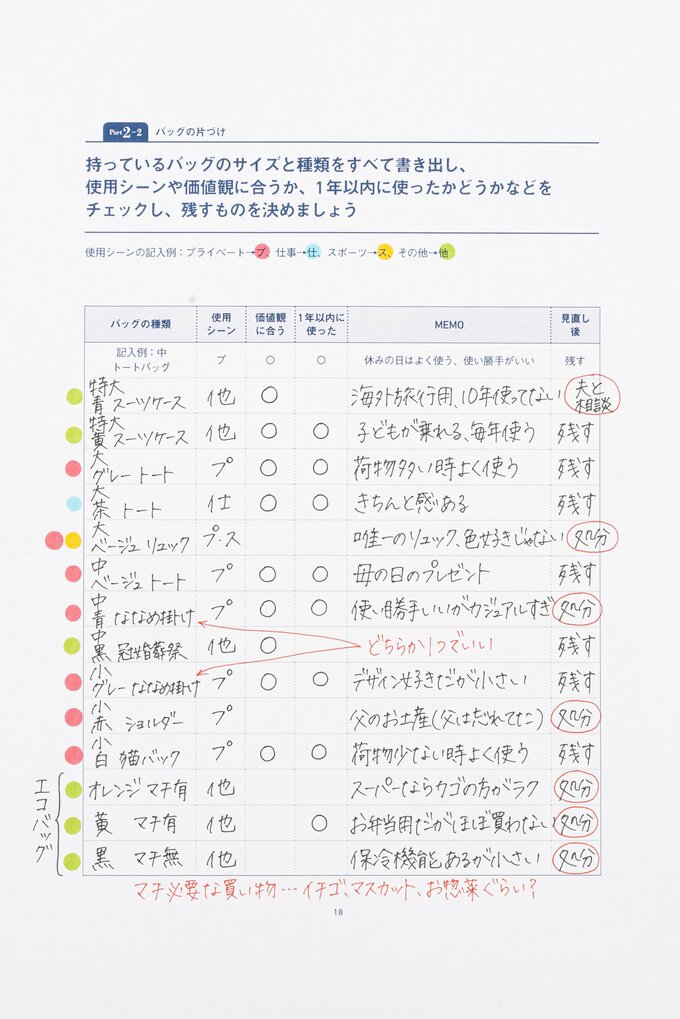 Part 2-2 バッグの片づけ
持っているバッグのサイズと種類をすべて書き出し、
使用シーンや価値観に合うか、1年以内に使ったかどうかなどを
チェックし、残すものを決めましょう
使用シーンの記入例：プライベート→プ、仕事→仕、スポーツ→ス、その他→他
バッグの種類 使用シーン 価値観に合う 1年以内に使った MEMO 見直し後
記入例：中トートバッグ プ ○ ○ 休みの日はよく使う、使い勝手がいい 残す
特大 青 スーツケース 他 ○ 海外旅行用、10年使ってない 夫と相談
特大 黄 スーツケース 他 ○ ○ 子どもが乗れる、毎年使う 残す
大 グレー トート プ ○ ○ 荷物多い時よく使う 残す
大 茶 トート 仕 ○ ○ きちんと感ある 残す
大 ベージュ リュック プ・ス 唯一のリュック、色好きじゃない 処分
中 ベージュ トート プ ○ ○ 母の日のプレゼント 残す
中 青 ななめ掛け プ ○ ○ 使い勝手いいがカジュアルすぎ 処分
中 黒 冠婚葬祭 他 ○ 残す
どちらか1つでいい
小 グレー ななめ掛け プ ○ ○ デザイン好きだが小さい 残す
小 赤 ショルダー プ 父のお土産(父は忘れてた) 処分
小 白 猫バック プ ○ ○ 荷物少ない時よく使う 残す
エコバッグ
オレンジ マチ有 他 スーパーならカゴの方がラク 処分
黄 マチ有 他 ○ お弁当用だがほぼ買わない 処分
黒 マチ無 他 保冷機能あるが小さい 処分
マチ必要な買い物…イチゴ、マスカット、お惣菜ぐらい?
18